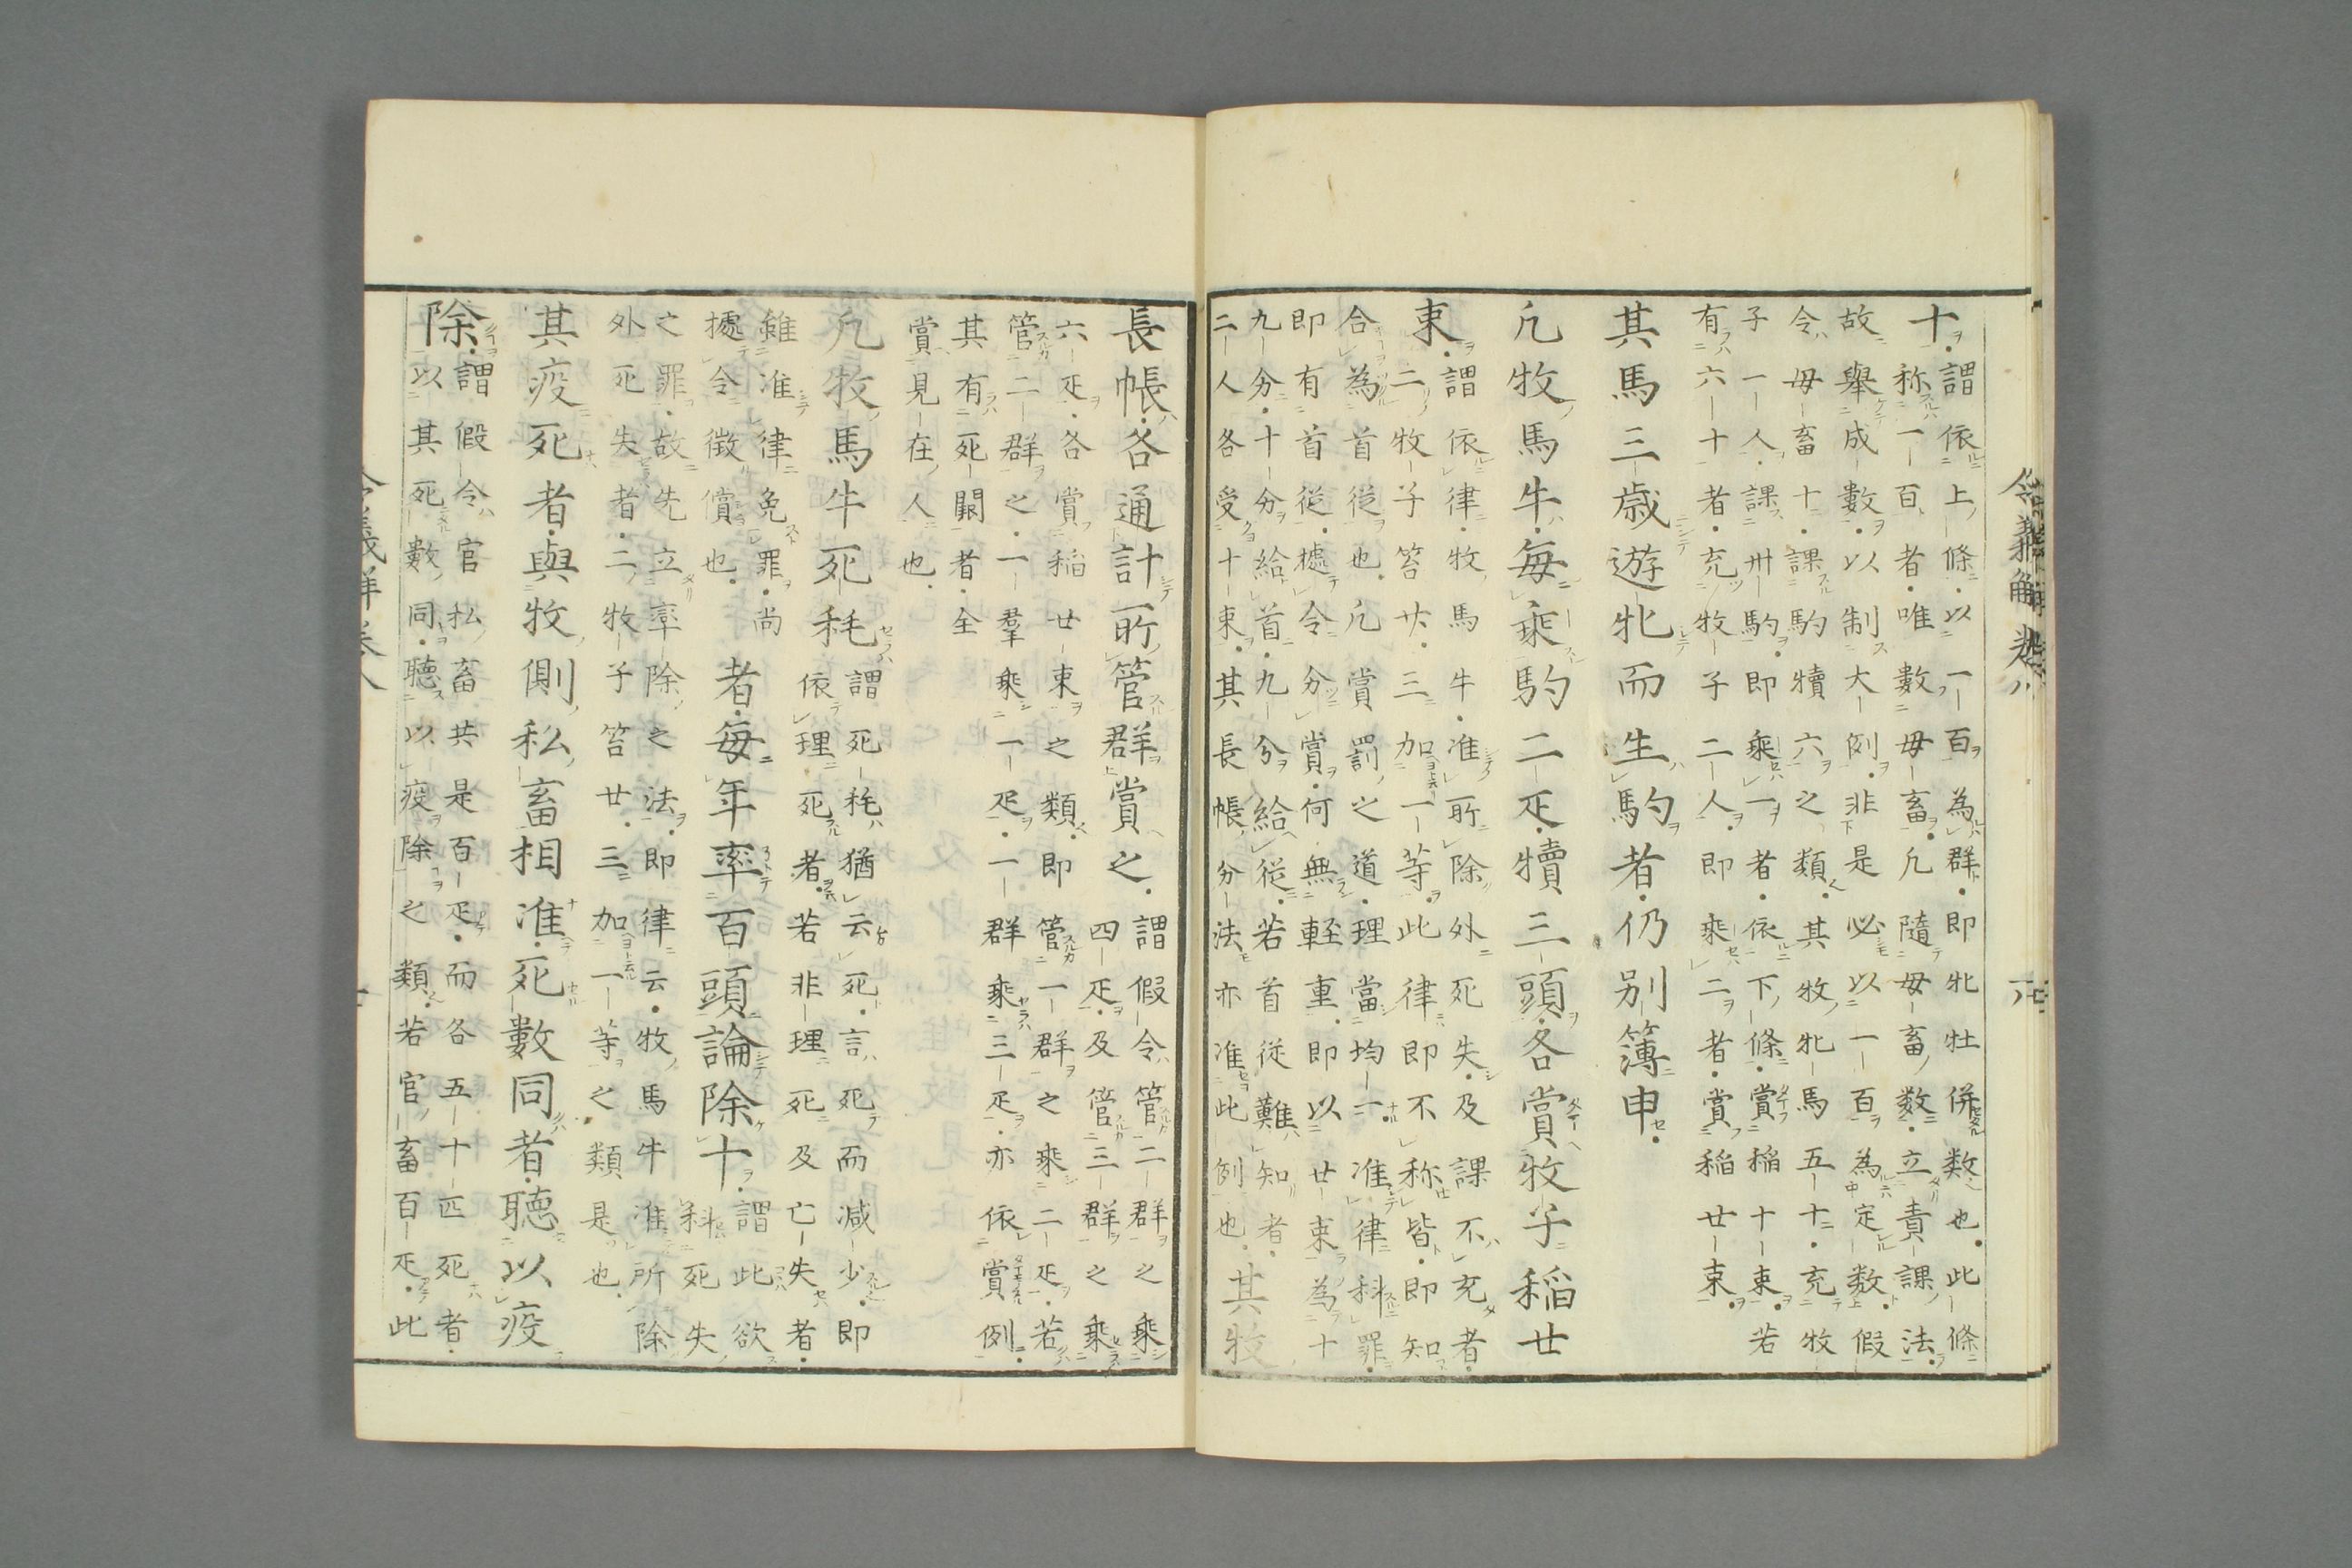 十謂依上條以一百為群即牝牡併数也此條
称一百者唯數毋畜凢隨毋畜数立責課法
故舉成數以制大例非是必以一百為定数假
令毋畜十課駒犢六之類其牧牝馬五十充牧
子一人課卅駒即乘一者依下條賞稲十束若
有六十者充牧子二人即乘二者賞稲廿束
其馬三歳遊牝而生駒者仍别簿申
凢牧馬牛每乘駒二疋犢三頭各賞牧子稲廿
束謂依律牧馬牛准所除外死失及課不充者
二牧子笞廿三加一等此律即不称皆即知
合為首從也凢賞罰之道理當均一准律科罪
即有首從據令分賞何無輕重即以廿束為十
九分十分給首九分給從若首從難知者
二人各受十束其長帳分法亦准此例也其牧
長帳各通計所管群賞之謂假令管二群之乘
四疋及管三群之乘
六疋各賞稲廿束之類即管一群之乘二疋若
管二群之一羣乘一疋一群乘三疋亦依賞例
其有死闕者全
賞見在人也
凢牧馬牛死耗謂死耗猶云死言死而减少即
依理死者若非理死及亡失者
雖准律免罪尚
據令徴償也
者每年率百頭論除十謂此欲
科死失
之罪故先立率除之法即律云牧馬牛准所除
外死失者二牧子笞廿三加一等之類是也
其疫死者與牧側私畜相准死數同者聽以疫
除謂假令官私畜共是百疋而各五十匹死者
以其死數同聽以疫除之類若官畜百疋此
令義解卷八